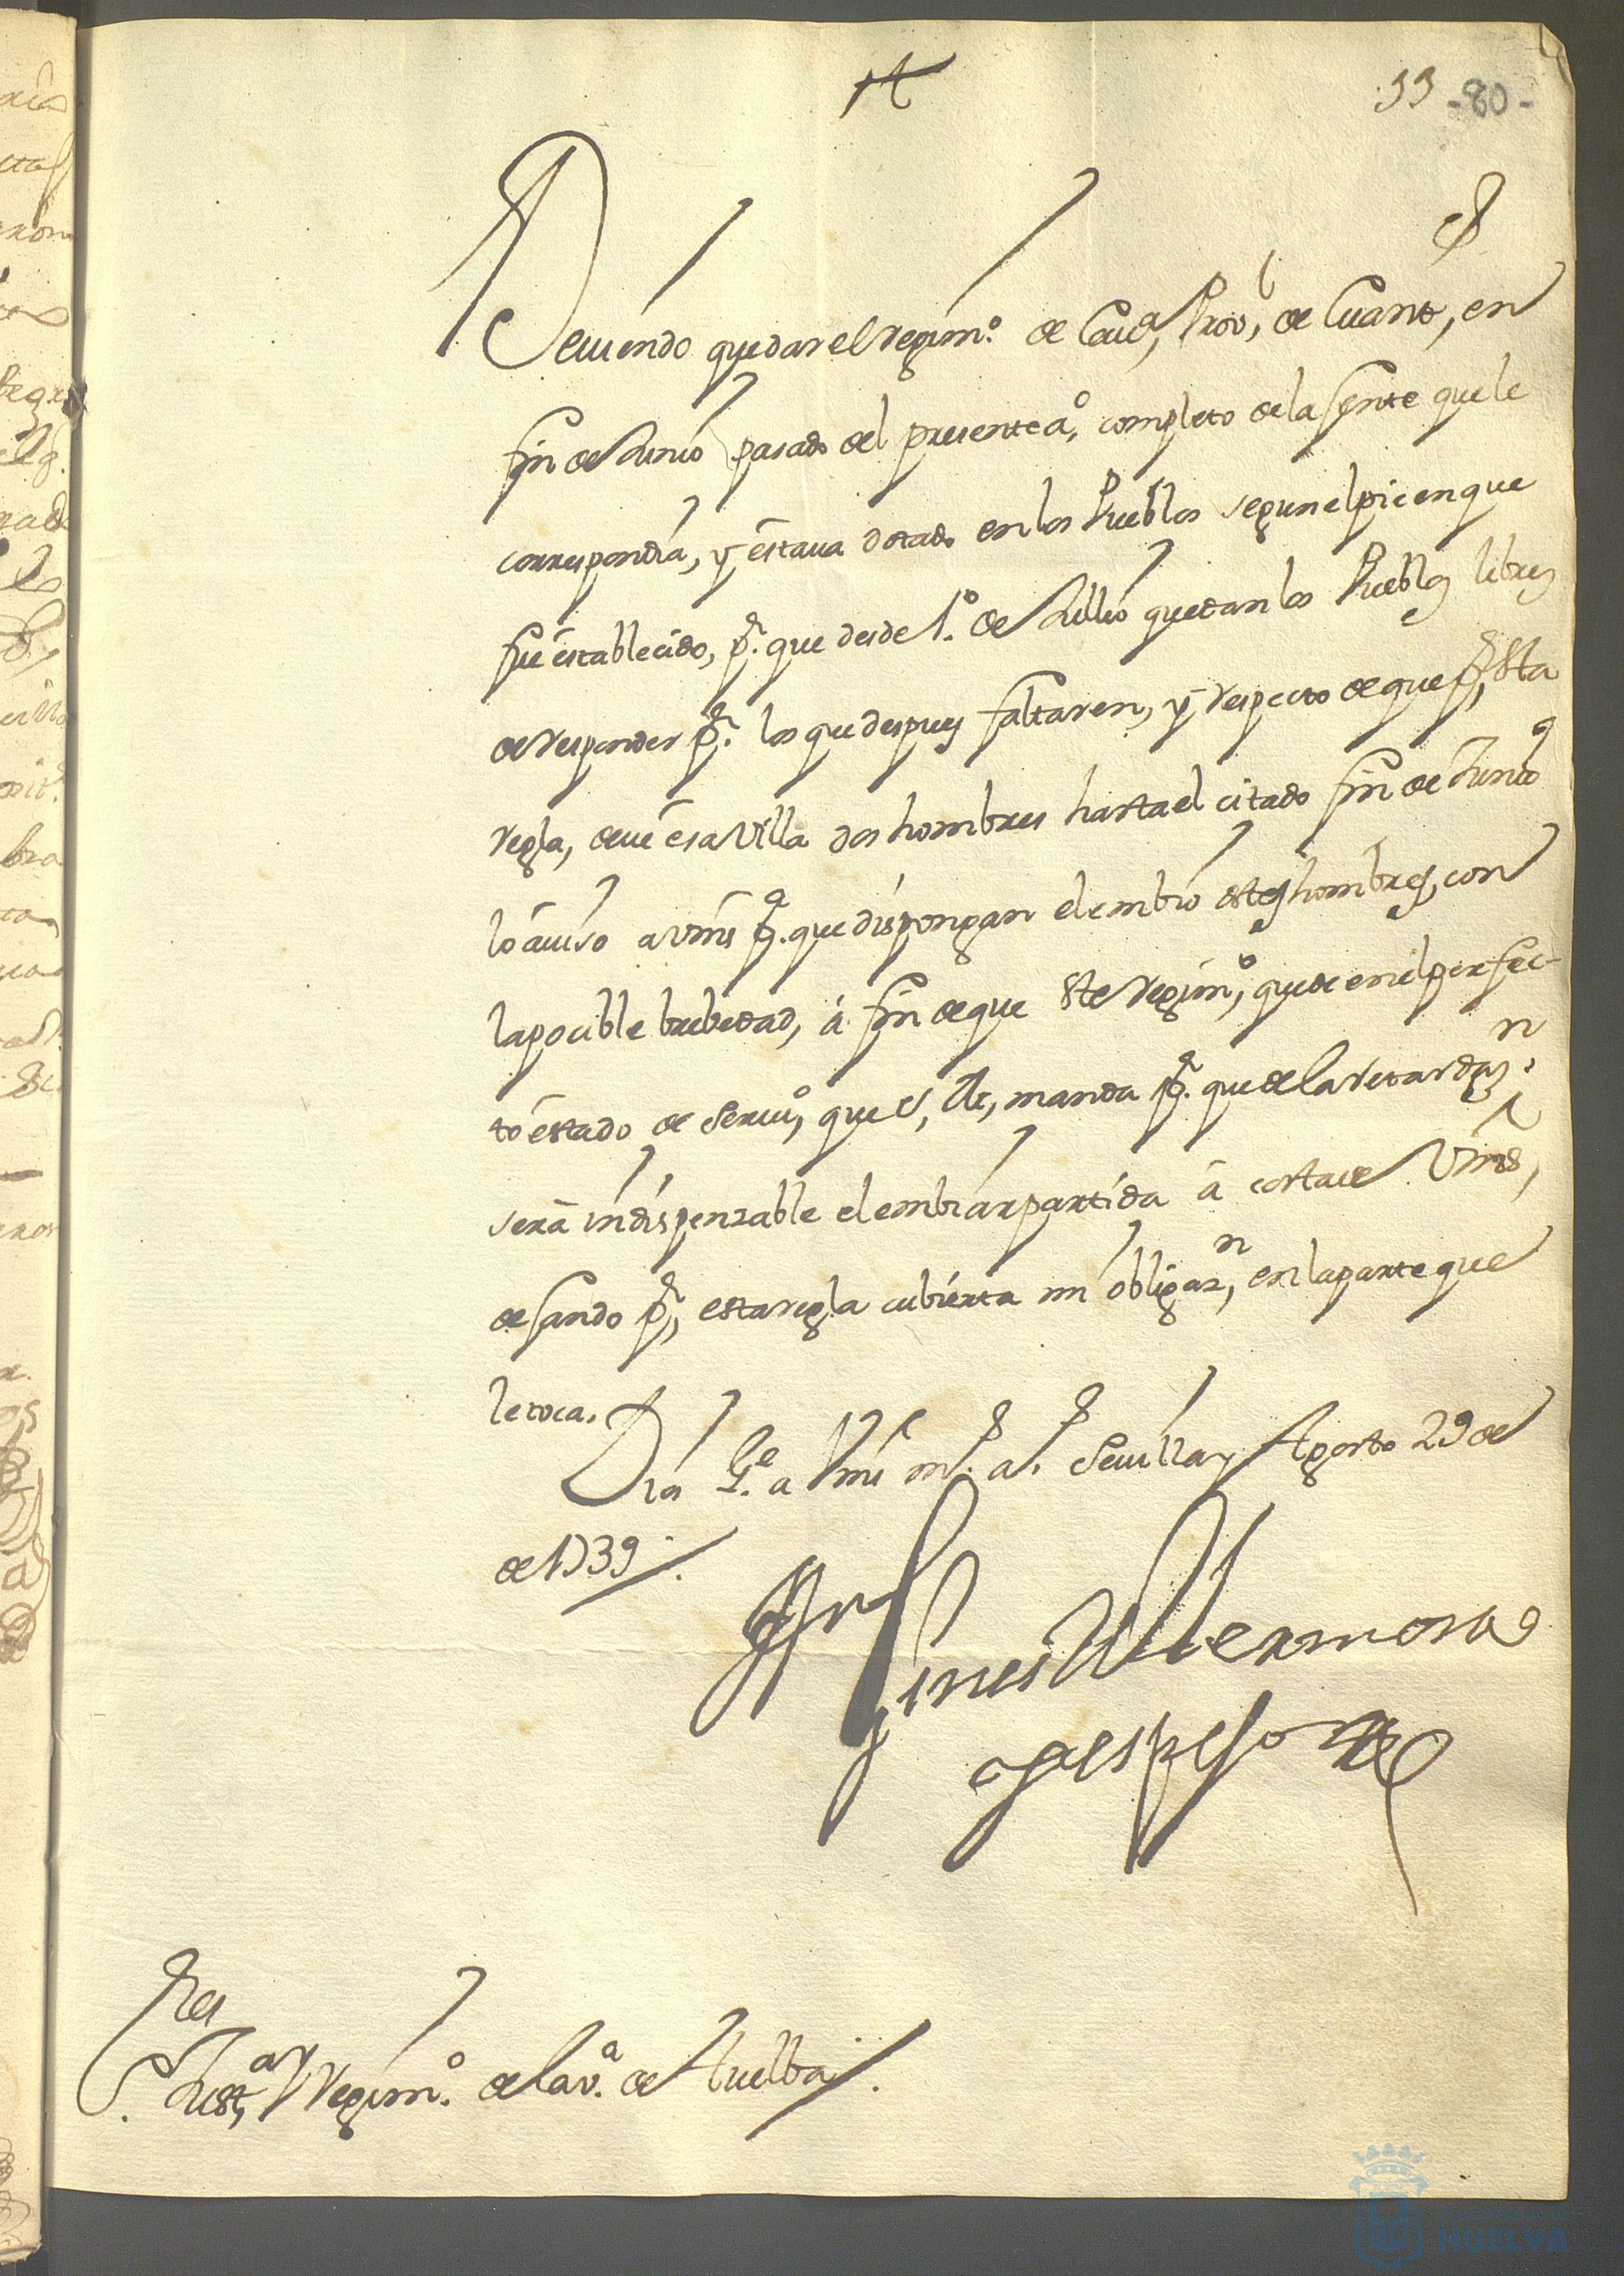 33 -80-
Deuiendo quedar el regim.º de Cau.ª, Prov.l, de Cuant.º, en
fin de Junio pasado del presente a.º, completo de la Gente que le
correspondia, y estaua dotado en los Pueblos segun el pie en que
fue establecido, p.r que desde 1.º de Jullio quedan los Pueblos libres
de responder p.r los que despues faltaren, y respecto de que p.r esta
regla, deue esa Villa dos hombres hasta el citado fin de Junio
lo auiso a Vms p.a que dispongan el embio destos hombres, con
la pocible brebedad, á fin de que este regim.º, quede en el perfec-
to estado de serui.º, que S, M, manda p.r que de la retardaz.n
será indispenzable el embiar partida á costa de Vms,
dejando p.r, esta regla cubierta mi obligaz.n, en la parte que
le toca.
Dios G.e a Vms m.s a.s Seuilla y Agosto 29 de
de 1739
Gines de Hermosa
y espejo
S.res
Just.a Y regim.º de la v.a de Huelba
HUELVA